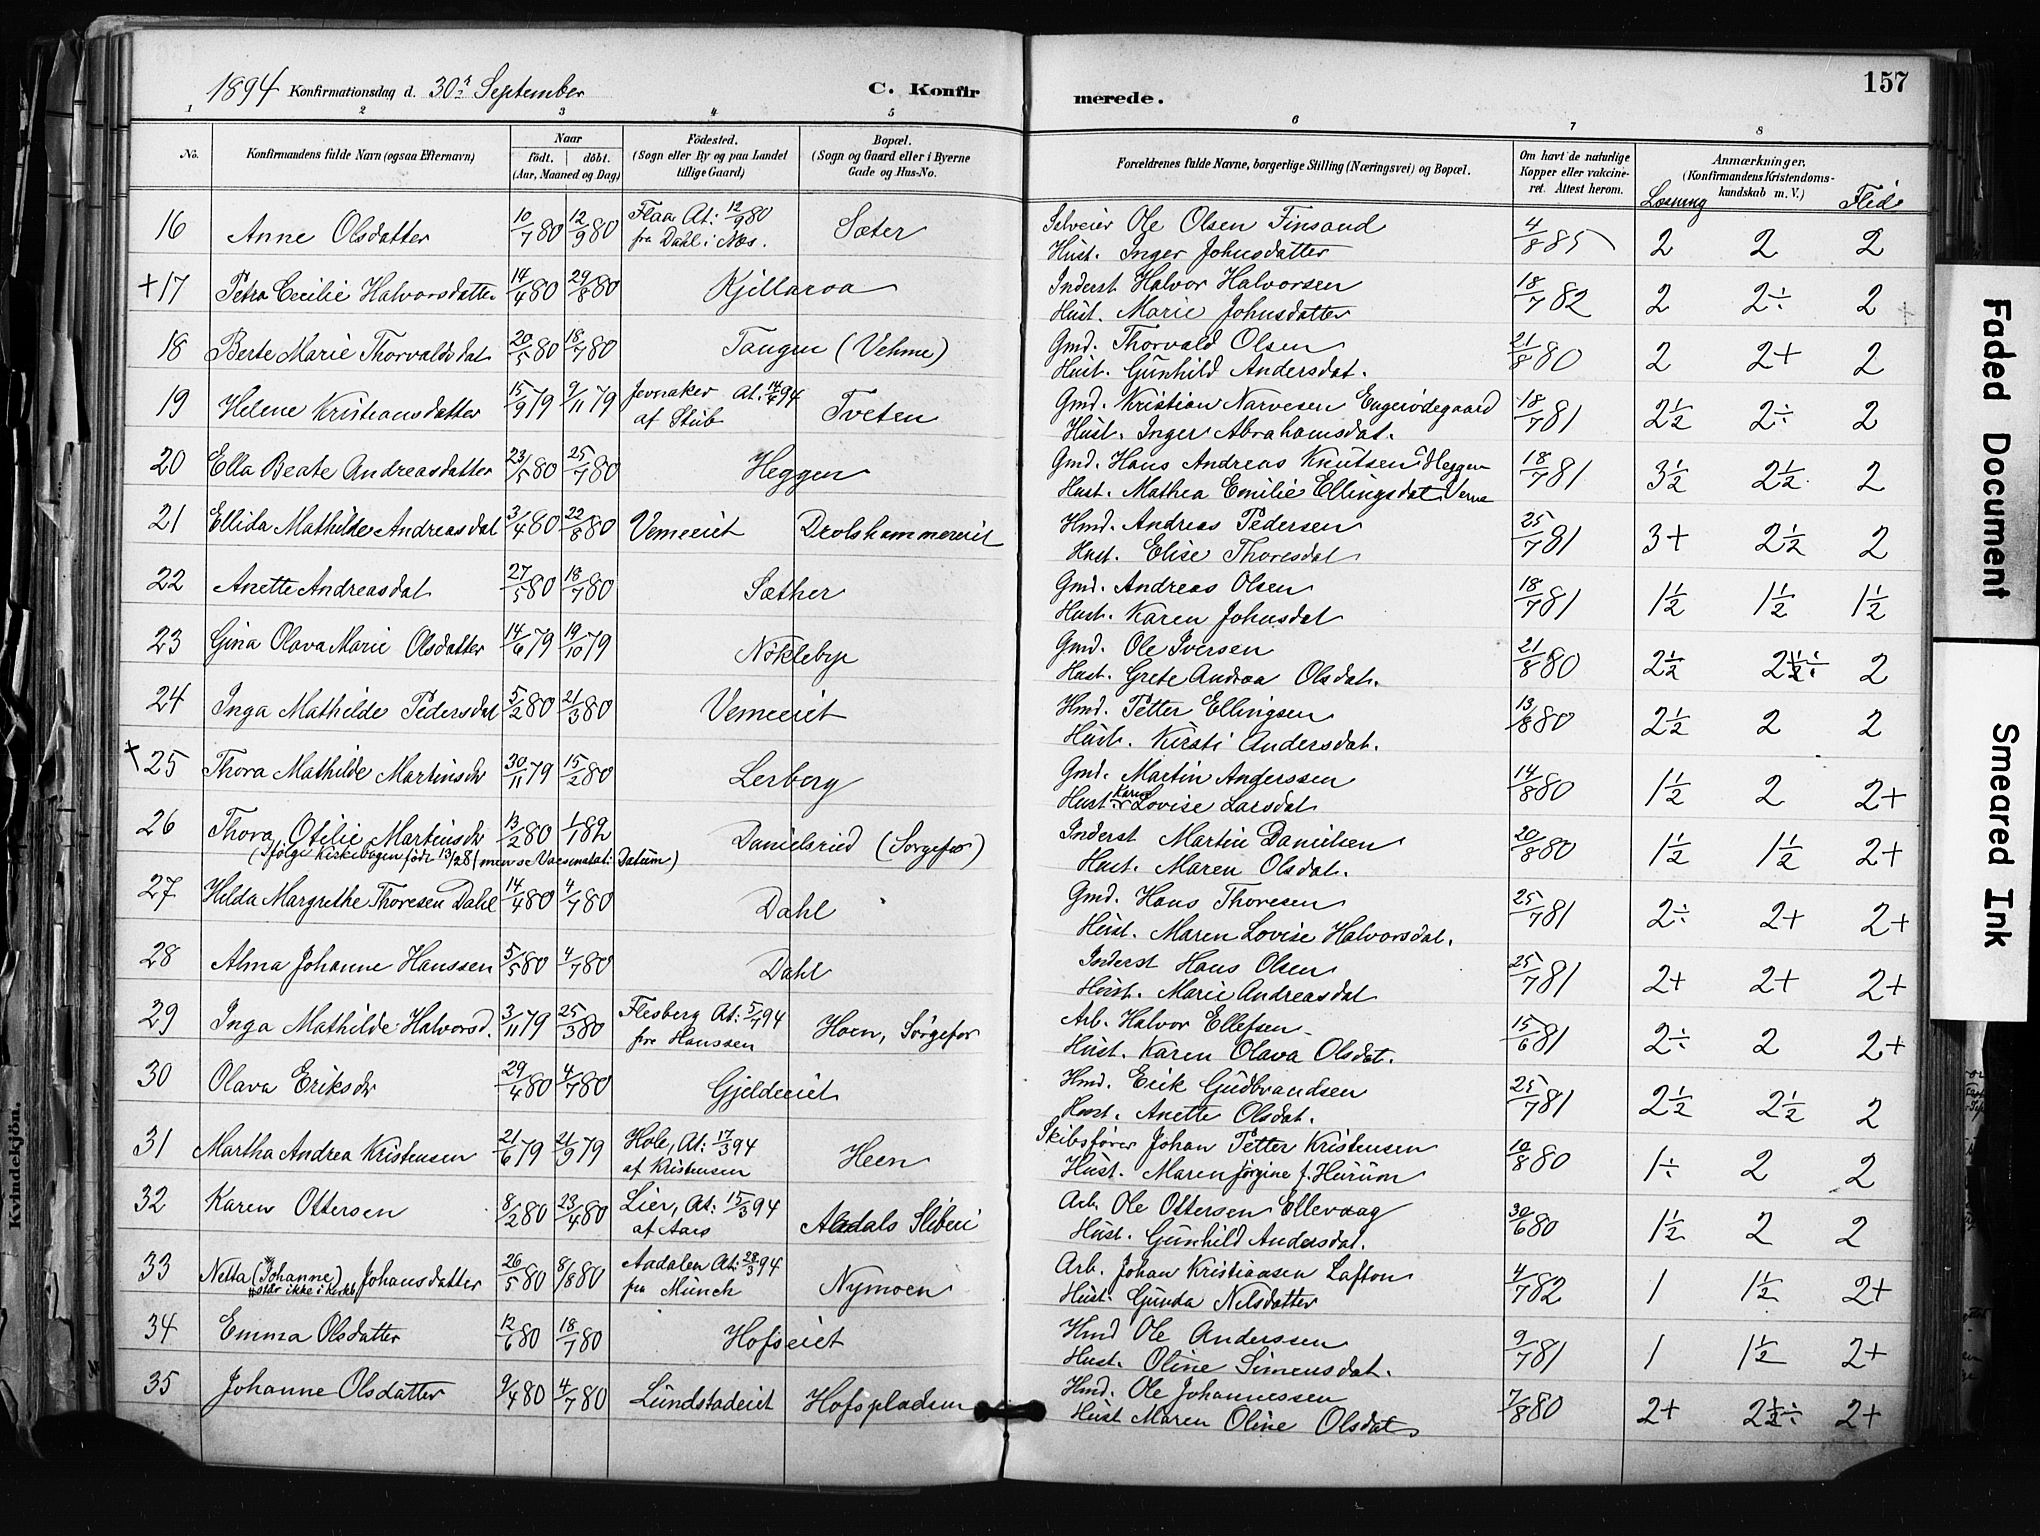 1894 Konfirmationsdag d. 30te September C. Konfirmerede. 157
1 2 3 4 5 6 7 8
No. Konfirmandens fulde Navn (ogsaa Efternavn) Naar födt. döbt. (Aar, Maaned og Dag) Födested. (Sogn eller By og paa Landet tillige Gaard) Bopæl. (Sogn og Gaard eller i Byerne Gade og Hus-No. Forældrenes fulde Navne, borgerlige Stilling (Næringsvei) og Bopæl. Om havt de naturlige Kopper eller vaccineret. Attest herom. Anmærkninger. (Konfirmandens Kristendomskundskab m. V.) Læsning Flid
16 Anne Olsdatter 10/7 80 12/9 80 Flaa At: 12/9 80 fra Dahl i Næs. Sæter Selveier Ole Olsen Finsand 4/8 85 2 2 2
Hust. Inger Johnsdatter
+17 Petra Cecilie Halvorsdatter 14/4 80 29/8 80 Kjillaroa Inderst Halvor Halvorsen 18/7 82 2 2÷ 2
Hust. Marie Johnsdatter
18 Berte Marie Thorvaldsdat 20/5 80 18/7 80 Tangen (Vehme) Gmd. Thorvald Olsen 21/8 80 2 2+ 2
Hust. Gunhild Andersdat.
19 Helene Kristiansdatter 15/9 79 9/11 79 Jevnaker At. 14/4 94 af Stub Tveten Gmd. Kristian Narvesen Engerödegaard 18/7 81 2½ 2÷ 2
Hust. Inger Abrahamsdat.
20 Ella Beate Andreasdatter 23/5 80 25/7 80 Heggen Gmd. Hans Andreas Knutsen Heggen 18/7 81 3½ 2½ 2
Hust. Mathea Emilie Ellingsdat Veme
21 Ellida Mathilde Andreasdat 3/4 80 22/8 80 Vemeeiet Drolshammereiet Hmd. Andreas Pedersen 25/7 81 3+ 2½ 2
Hust. Elise Thoresdat
22 Anette Andreasdat 27/5 80 18/7 80 Sæther Gmd. Andreas Olsen 18/7 81 1½ 1½ 1½
Hust. Karen Johnsdat
23 Gina Olava Marie Olsdatter 14/6 79 19/10 79 Nöklebye Gmd. Ole Iversen 21/8 80 2½ 2½÷ 2
Hust. Grete Andrea Olsdat.
24 Inga Mathilde Pedersdat 5/2 80 21/3 80 Vemeeiet Hmd. Petter Ellingsen 13/8 80 2½ 2 2
Hust. Kirsti Andersdat.
+25 Thora Mathilde Martinsdr 30/11 79 15/2 80 Lerberg Gmd. Martin Anderssen 14/8 80 1½ 2 2+
Hust. Karen Lovise Larsdat
26 Thora Otilie Martinsdr 13/2 80 1/1 82 Danielsrud (Sørgefos) Inderst Martin Danielsen 20/8 80 1½ 1½ 2+
(Ifölge Kirkebogen födt 13/2 81 men se Vaccinatat: Datum) Hust. Maren Olsdat.
27 Hilda Margrethe Thoresen Dahl 14/4 80 4/7 80 Dahl Gmd. Hans Thoresen 25/7 81 2÷ 2+ 2+
Hust. Maren Lovise Halvorsdat.
28 Alma Johanne Hanssen 5/5 80 4/7 80 Dahl Inderst Hans Olsen 25/7 81 2+ 2+ 2+
Hust. Marie Andreasdat
29 Inga Mathilde Halvorsd. 3/11 79 25/3 80 Flesberg At: 5/7 94 fra Hanssen Hoen, Sørgefos Arb. Halvor Ellefsen 15/6 81 2÷ 2 2+
Hust. Karen Olava Olsdat.
30 Olava Eriksdr 29/4 80 4/7 80 Gjeldeeiet Hmd. Erik Gudbrandsen 25/7 81 2½ 2½ 2
Hust. Anette Olsdat.
31 Martha Andrea Kristensen 21/6 79 21/9 79 Hole, At: 17/3 94 af Kristensen Heen Skibsfører Johan Petter Kristensen 10/8 80 1÷ 2 2
Hust. Maren Jörgine f. Heirum
32 Karen Ottersen 8/2 80 23/4 80 Lier, At: 15/3 94 af Aars Aadals Sliberi Arb. Ole Ottersen Ellevaag 30/6 80 1½ 2 2
Hust. Gunhild Andersdat.
33 Netta (Johanne) Johansdatter 26/5 80 8/8 80 Aadalen At: 28/3 94 fra Münch Nymoen Arb. Johan Kristiansen Lafton 4/7 82 1 1½ 2+
står ikke i Kirkb. Hust. Gunda Nilsdatter
34 Emma Olsdatter 12/6 80 18/7 80 Hofseiet Hmd Ole Anderssen 9/7 81 1 1½ 2+
Hust. Oline Simensdat.
35 Johanne Olsdatter 9/4 80 4/7 80 Lundstadeiet Hofspladsen Hmd. Ole Johannessen 7/8 80 2+ 2½÷ 2+
Hust Maren Oline Olsdat.
Kvindekjön.
Faded Document
Smeared Ink